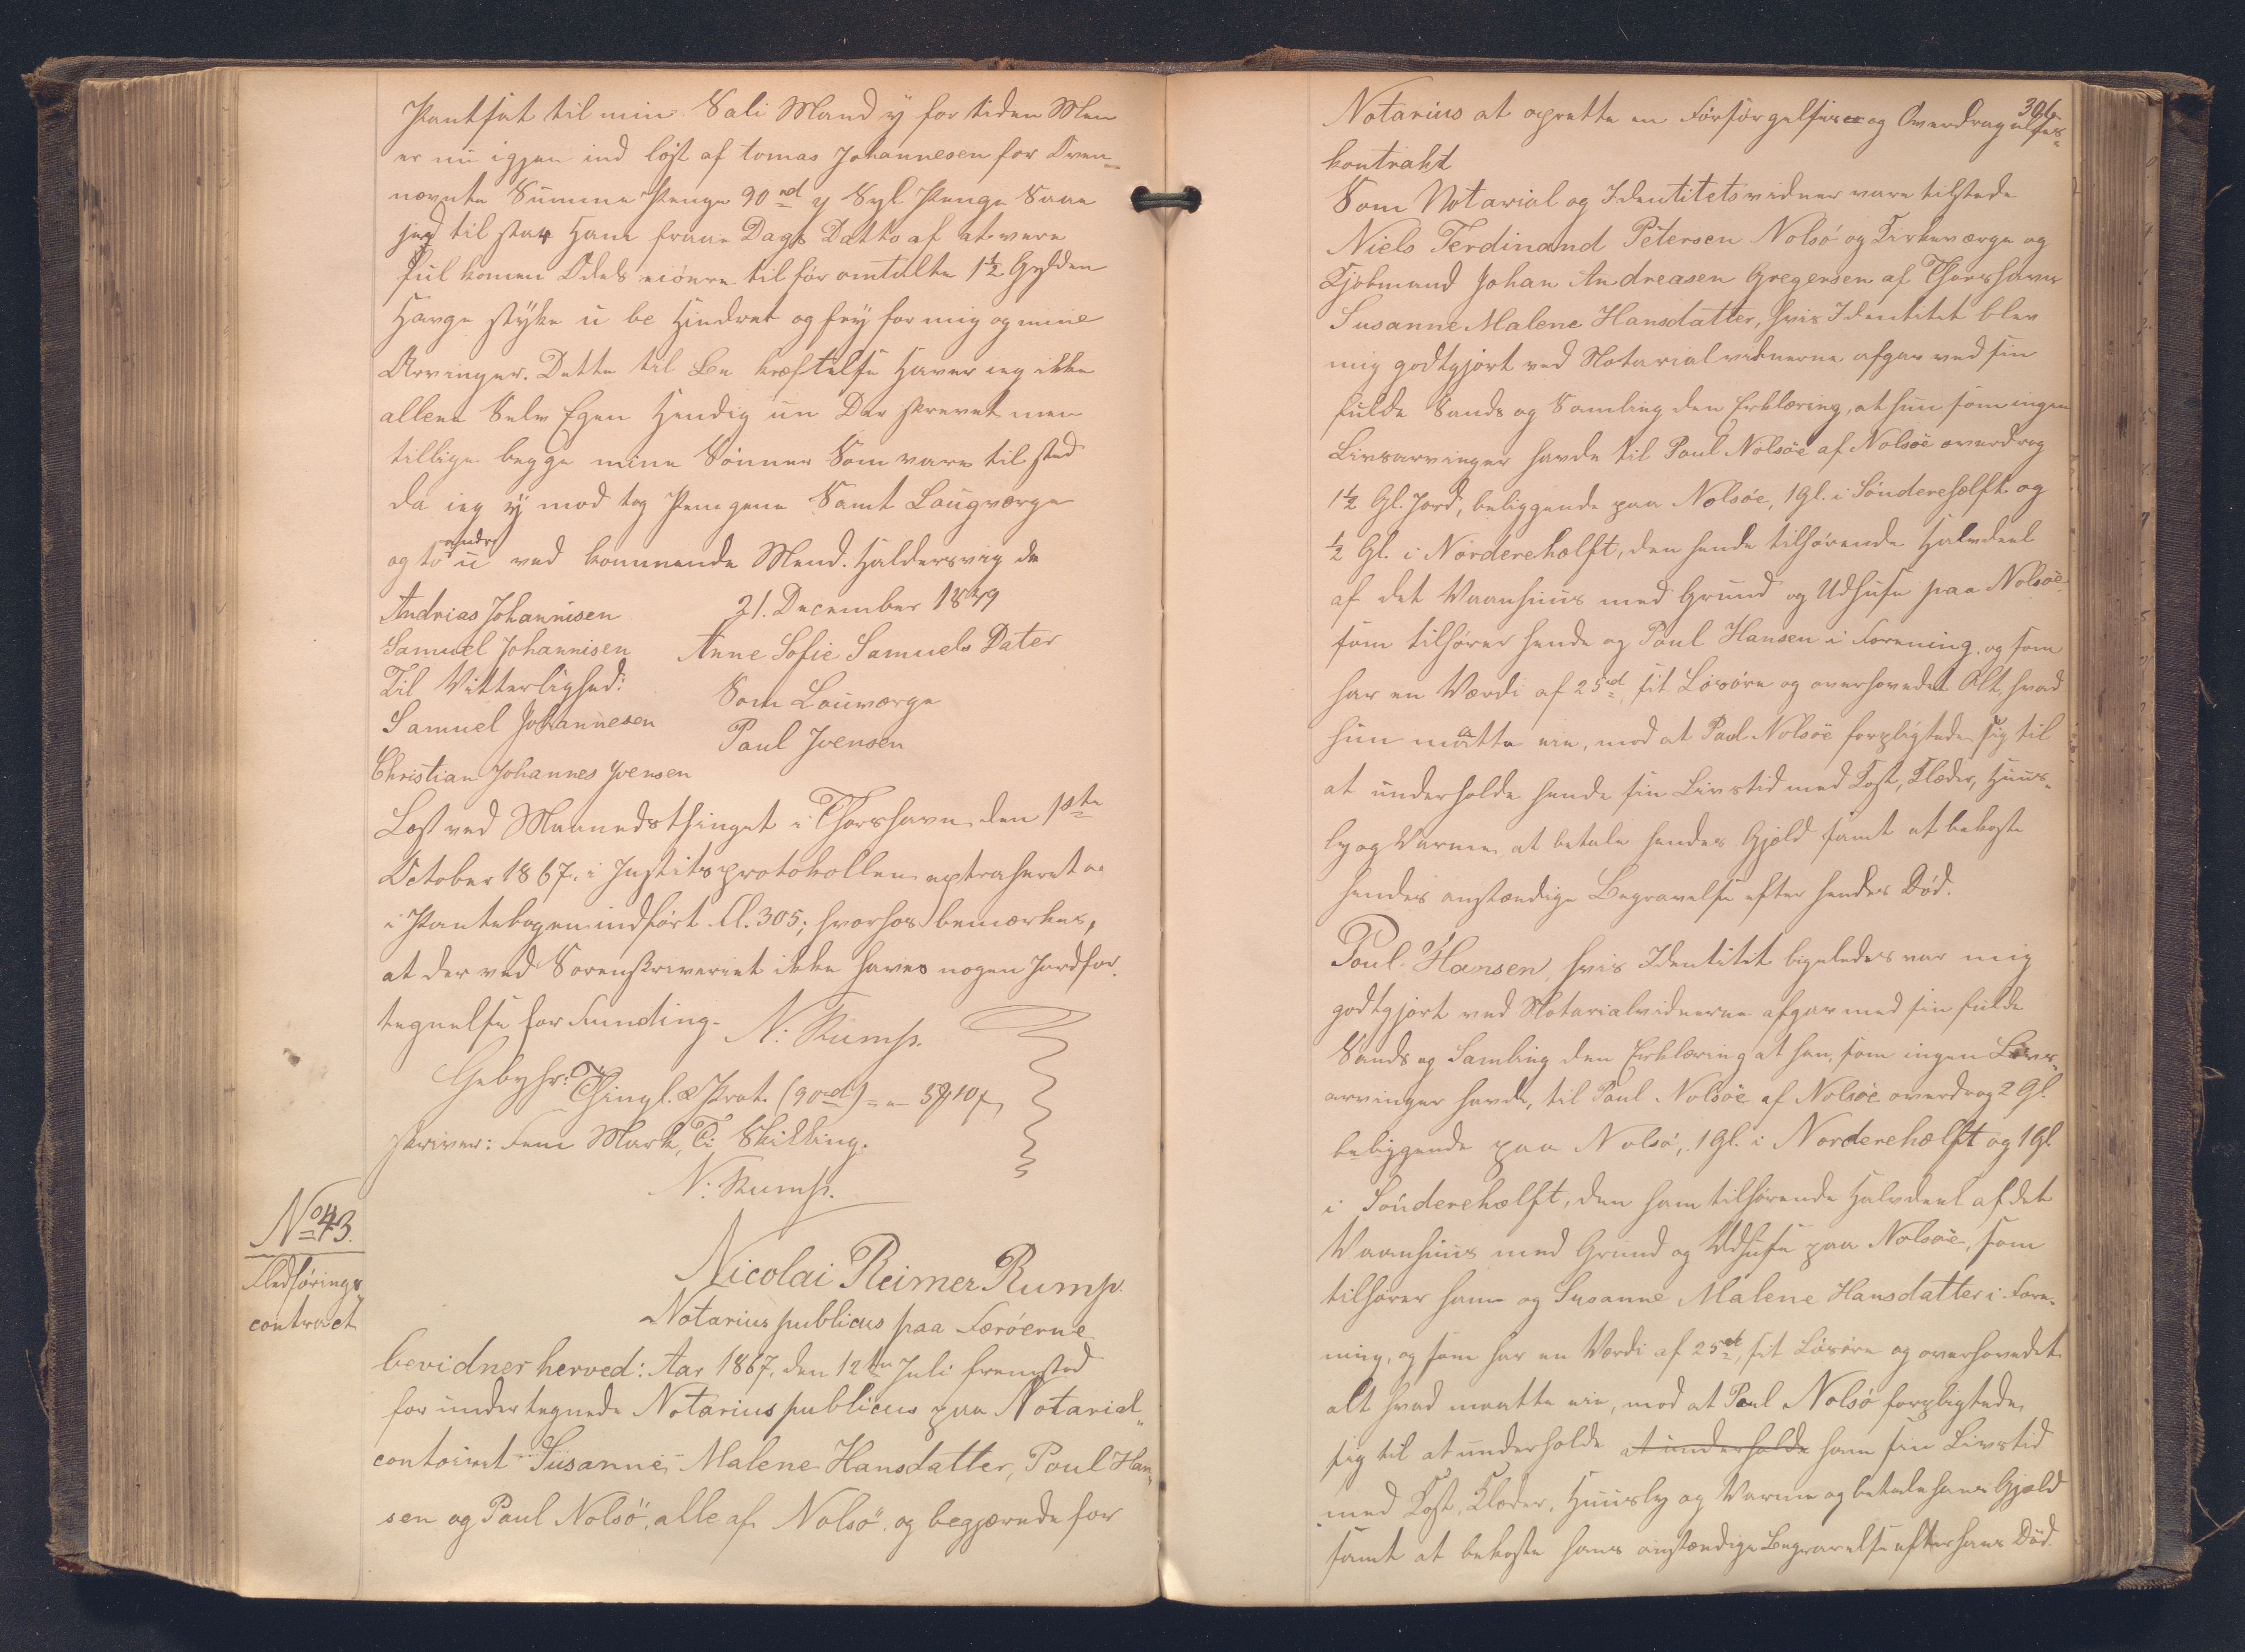 Pantsat til min Sali Mand y for tiden Men
er nu igjen ind løst af tomas Johannesen for Oven
nævnte Summe Penge 90 rd y Syl Penge Saa
jeg til staar Ham fraa Dags Datto af at være
ful komen Odels eiere til før omtalte 1½ Gylden
Hauge støke u be Hindret og frÿ for mig og mine
Arvinger. Dette til Be kræftelse Haver ieg ikke
allene Selv Egen Hendig un Der skrevet men
tillige begge mine Sönner Som vare til sted
da ieg ÿ mod tog Pengene Samt Laugværge
og to andre u ved kommende Mend. Haldersvig de
Andrias Johannisen 21. December 1849
Samuel Johannisen Anne Sofie Samuels Dater
Til Vitterlighed: Som Lauværge
Samuel Johannesen Paul Joensen
Christian Johannes Joensen
Læst ved Maanedsthinget i Thorshavn den 1ste
October 1867. i Justitsprotokollen extraheret og
i Pantebogen indført fol. 305; hvorhos bemærkes,
at der ved Sorenskriveriet ikke haves nogen Jordfor-
tegnelse for Funding. N: Rump.
Gebyhr: Thingl. & Prot. (90rd) = 5 ₻ 10 ſ,
skriver: Fem Mark, Ti Skilling.
N: Rump.
No 43.
Fledførings-
contract
Nicolai Reimer Rump.
Notarius publicus paa Færöerne
bevidner herved: Aar 1867, den 12te Juli fremstod
for undertegnede Notarius publicus paa Notarial-
contoiret Susanne Malene Hansdatter, Poul Han-
sen og Paul Nolsö, alle af Nolsö og begjærede for
306
Notarius at oprette en Forsörgelses- og Overdragelses-
kontrakt
Som Notarial og Identitetsvidner vare tilstede
Niels Ferdinand Petersen Nolsö og Kirkeværge og
Kjöbmand Johan Andreasen Gregersen af Thorshavn
Susanne Malene Hansdatter, hvis Identitet blev
mig godtgjort ved Notarialvidnerne afgav ved sin
fulde Sands og Samling den Erklæring, at hun som ingen
Livsarvinger havde til Paul Nolsöe af Nolsöe overdrog
1½ Gl. Jord, beliggende paa Nolsöe, 1 Gl. i Sönderehælft og
½ Gl. i Nörderehælft, den hende tilhörende Halvdeel
af det Vaanhuus med Grund og Udhuse paa Nolsöe
som tilhører hende og Poul Hansen i Forening, og som
har en Værdi af 25 rd, sit Lösöre og overhovedet Alt, hvad
hun måtte eie, mod at Paul Nolsöe forpligtede sig til
at underholde hende sin Livstid med Kost, Klæder, Huus-
ly og Varme, at betale hendes Gjæld samt at bekoste
hendes anstændige Begravelse efter hendes Död.
Poul Hansen, hvis Identitet ligeledes var mig
godtgjort ved Notarialvidnerne afgav med sin fulde
Sands og Samling den Erklæring at han, som ingen Livs-
arvinger havde, til Paul Nolsöe af Nolsöe overdrog 2 Gl.
beliggende paa Nolsö, 1 Gl. i Norderehælft og 1 Gl.
i Sönderehælft, den ham tilhörende Halvdeel af det
Vaanhuus med Grund og Udhuse paa Nolsöe, som
tilhører ham og Susanne Malene Hansdatter i Fore-
ning, og som har en Værdi af 25 rd, sit Lösöre og overhovedet
alt hvad maatte eie, mod at Paul Nolsö forpligtede
sig til at underholde at underholde ham sin Livstid
med Kost, Klæder, Huusly og Varme og betale hans Gjæld
samt at bekoste hans anstændige Begravelse efter hans Död.